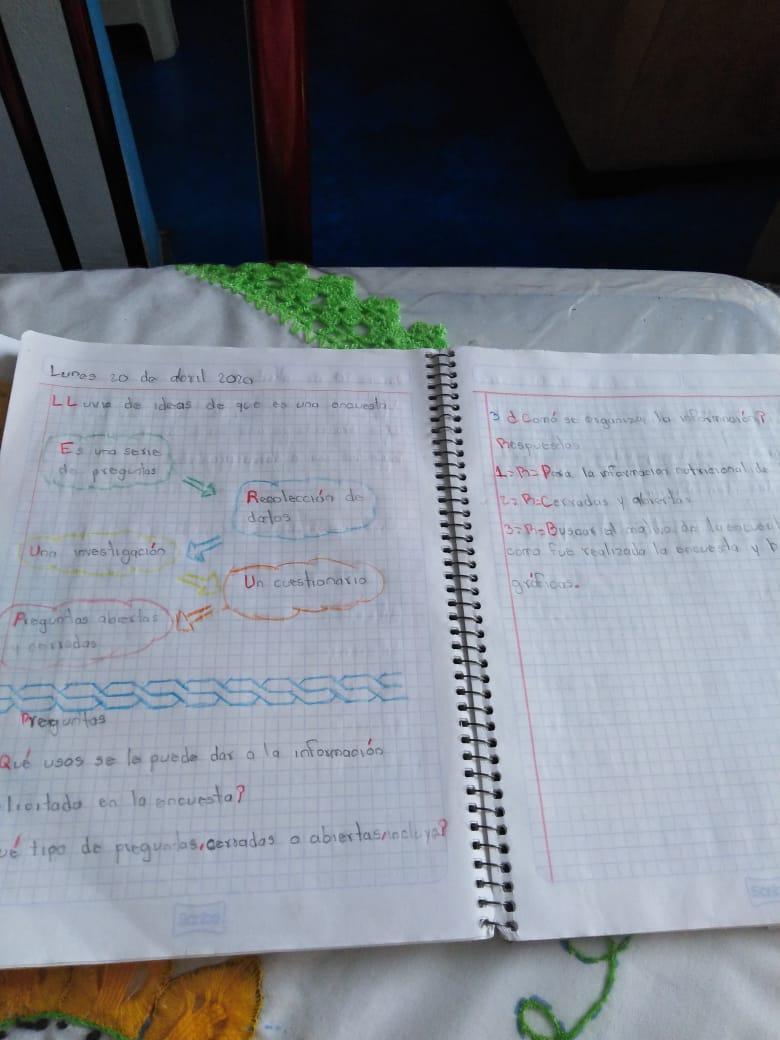 Lunes 20 de abril 2020
LLuvia de ideas de que es una encuesta.
Es una serie
de preguntas
Recolección de
datos
Una investigación
Un cuestionario
Preguntas abiertas
y cerradas
Preguntas
Qué usos se le puede dar a la información
licitada en la encuesta?
ué tipo de preguntas, cerradas o abiertas, incluya?
Scribe
3 ¿Comó se organizan la información?
Respuestas
1=R=Para la información nutricional de
2=R=Cerradas y abiertas
3=R=Buscar el de la
como fue realizada la encuesta y
gráficas.